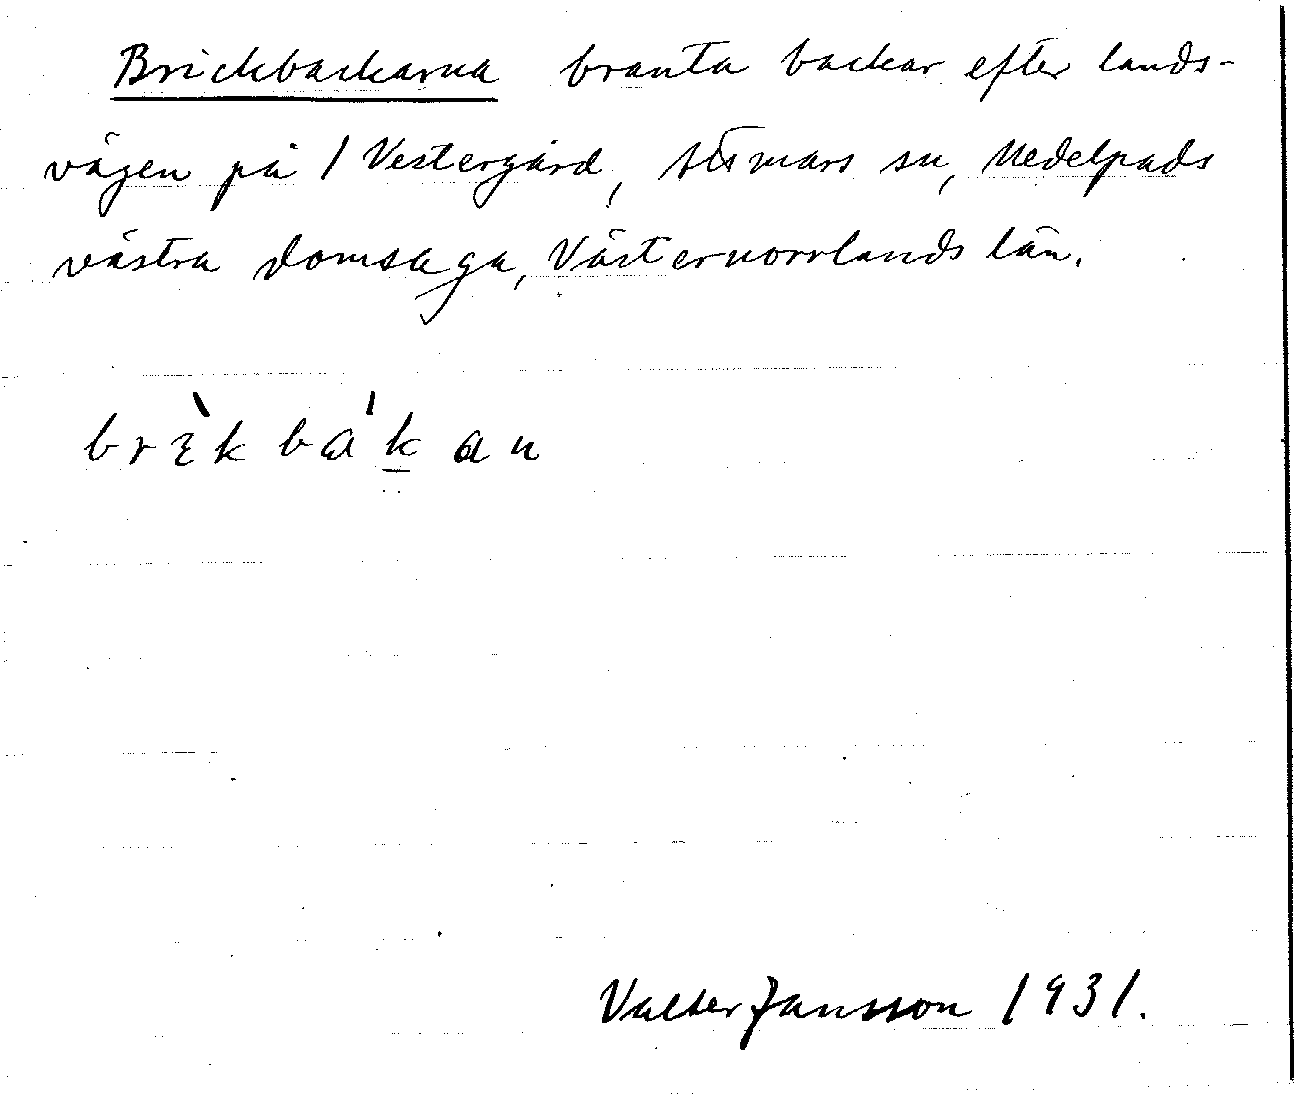 Brickbackarna branta backar efter lands-
vägen på 1 Vestergård, Attmars sn, Medelpads
västra domsaga, Västernorrlands län.
brɛ̀k bákan
Valter Jansson 1931.